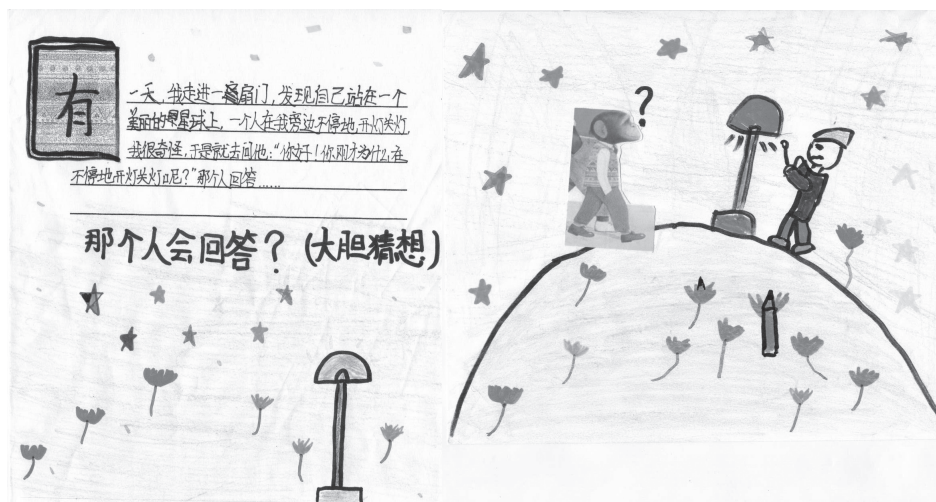 有
一天，我走进一扇门，发现自己站在一个
美丽的星球上，一个人在我旁边不停地开灯关灯，
我很奇怪，于是就去问他：“你好！你刚才为什么在
不停地开灯关灯呢？”那个人回答……
那个人会回答？（大胆猜想）
?